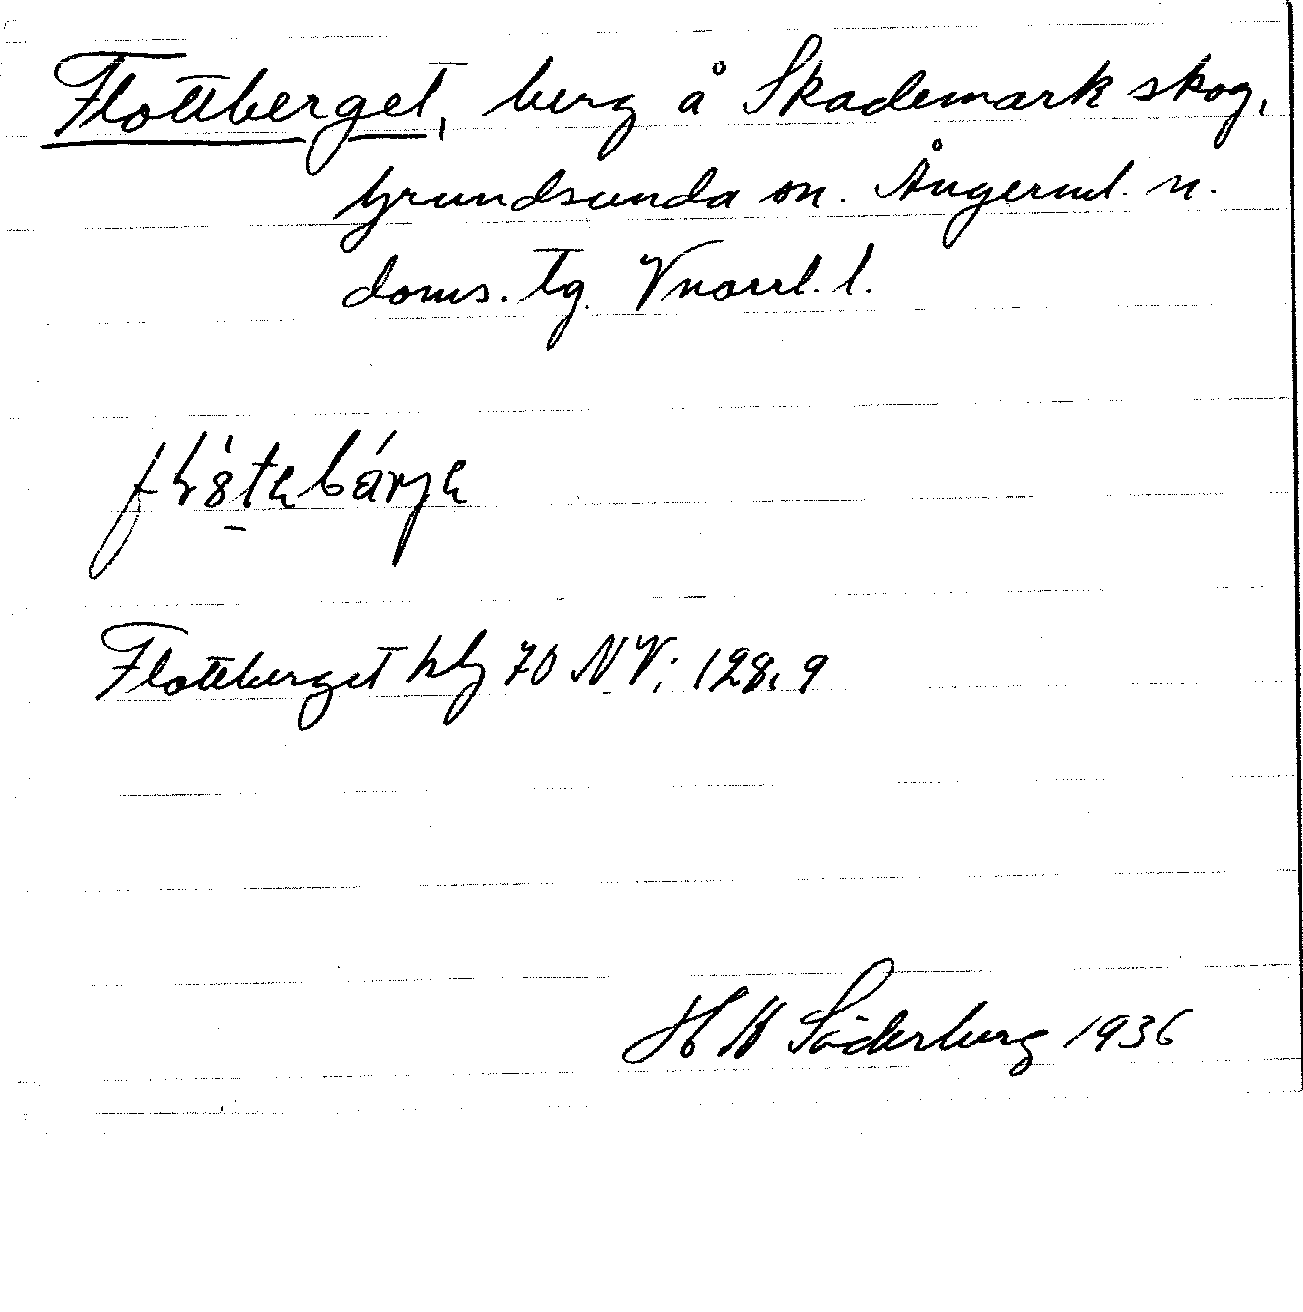 Flottberget, berg å Skademark skog,
Grundsunda sn. Ångerml. n.
doms. tg. Vnorrl. l.
Flottberget hbl 70 NV: 128,9
H M Söderberg 1936